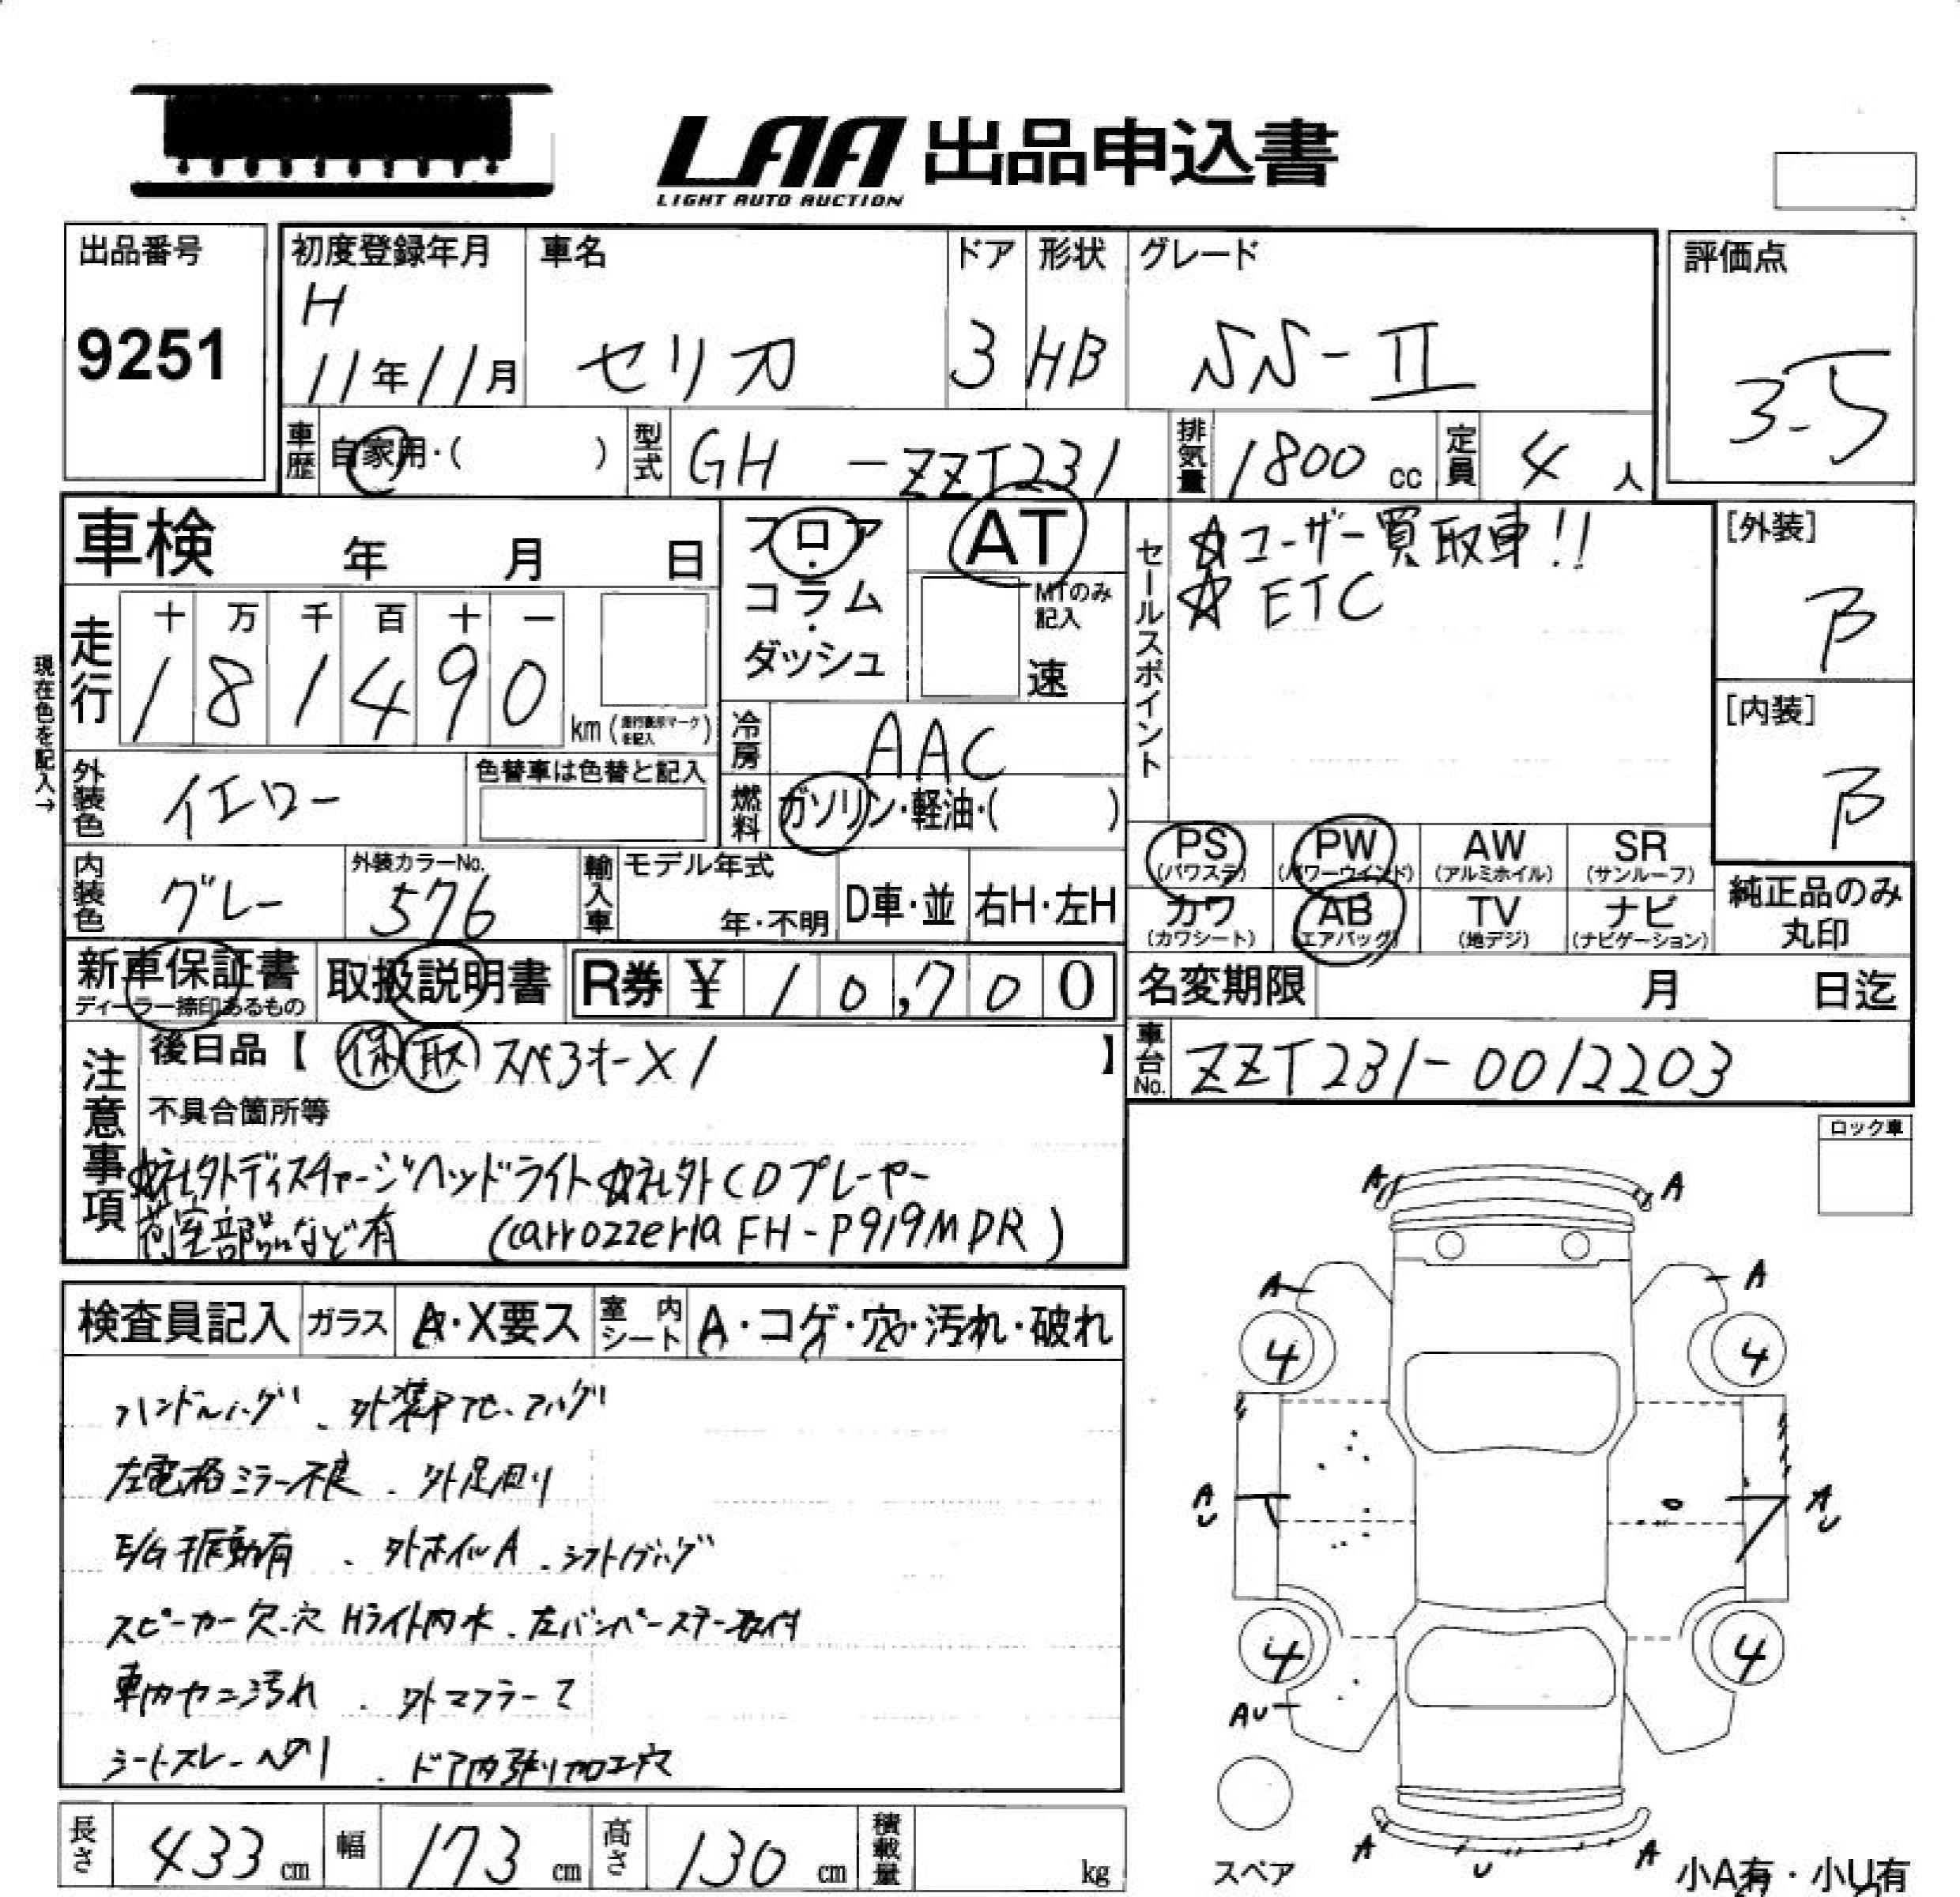 LAA 出品申込書
LIGHT AUTO AUCTION
出品番号
9251
初度登録年月
H
11年11月
車名
セリカ
ドア
3
形状
HB
グレード
SS-Ⅱ
評価点
3.5
車歴 自家用・( )
型式 GH -ZZT231
排気量 1800 cc
定員 4 人
車検 年 月 日
フロア・
コラム・
ダッシュ
AT
MTのみ
記入
速
セールスポイント
☆ユーザー買取車!!
☆ETC
[外装]
B
[内装]
B
現在色を記入→
走行
十 万 千 百 十 一
1 8 1 4 9 0
km (走行表示マーク を記入)
冷房 AAC
外装色 イエロー
色替車は色替と記入
燃料 ガソリン・軽油・( )
PS (パワステ)
PW (パワーウインド)
AW (アルミホイル)
SR (サンルーフ)
カワ (カワシート)
AB (エアバッグ)
TV (地デジ)
ナビ (ナビゲーション)
純正品のみ
丸印
内装色 グレー
外装カラーNo.
576
輸入車
モデル年式
年・不明
D車・並
右H・左H
新車保証書
ディーラー捺印あるもの
取扱説明書
R券 ¥ 10,700
名変期限 月 日迄
注意事項
後日品【 保 取 スペアキーX1 】
車台No. ZZT231-0012203
不具合箇所等
☆社外ディスチャージヘッドライト ☆社外CDプレーヤー
荷室部品など有 (carrozzeria FH-P919MDR)
ロック車
検査員記入
ガラス A・X要ス
室内シート A・コゲ・穴・汚れ・破れ
ハンドルハゲ 、外装
左電格ミラー不良 、外足回り
E/G振動有 、外ホイルA 、シフトノブハゲ
スピーカー欠、穴 Hライト内水 、左バンパーステー取付
車内ヤニ汚れ 、外マフラー
シートスレ 、ドア内張り加工穴
A A
A A
4 4
A U A U
4 4
AU
A U A
スペア
小A有・小U有
長さ 433 cm
幅 173 cm
高さ 130 cm
積載量 kg